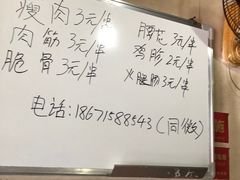 瘦肉3元/串
肉筋3元/串
脆骨3元/串
腰花3元/串
鸡胗2元/串
火腿肠3元/串
电话:18671588543(同微)